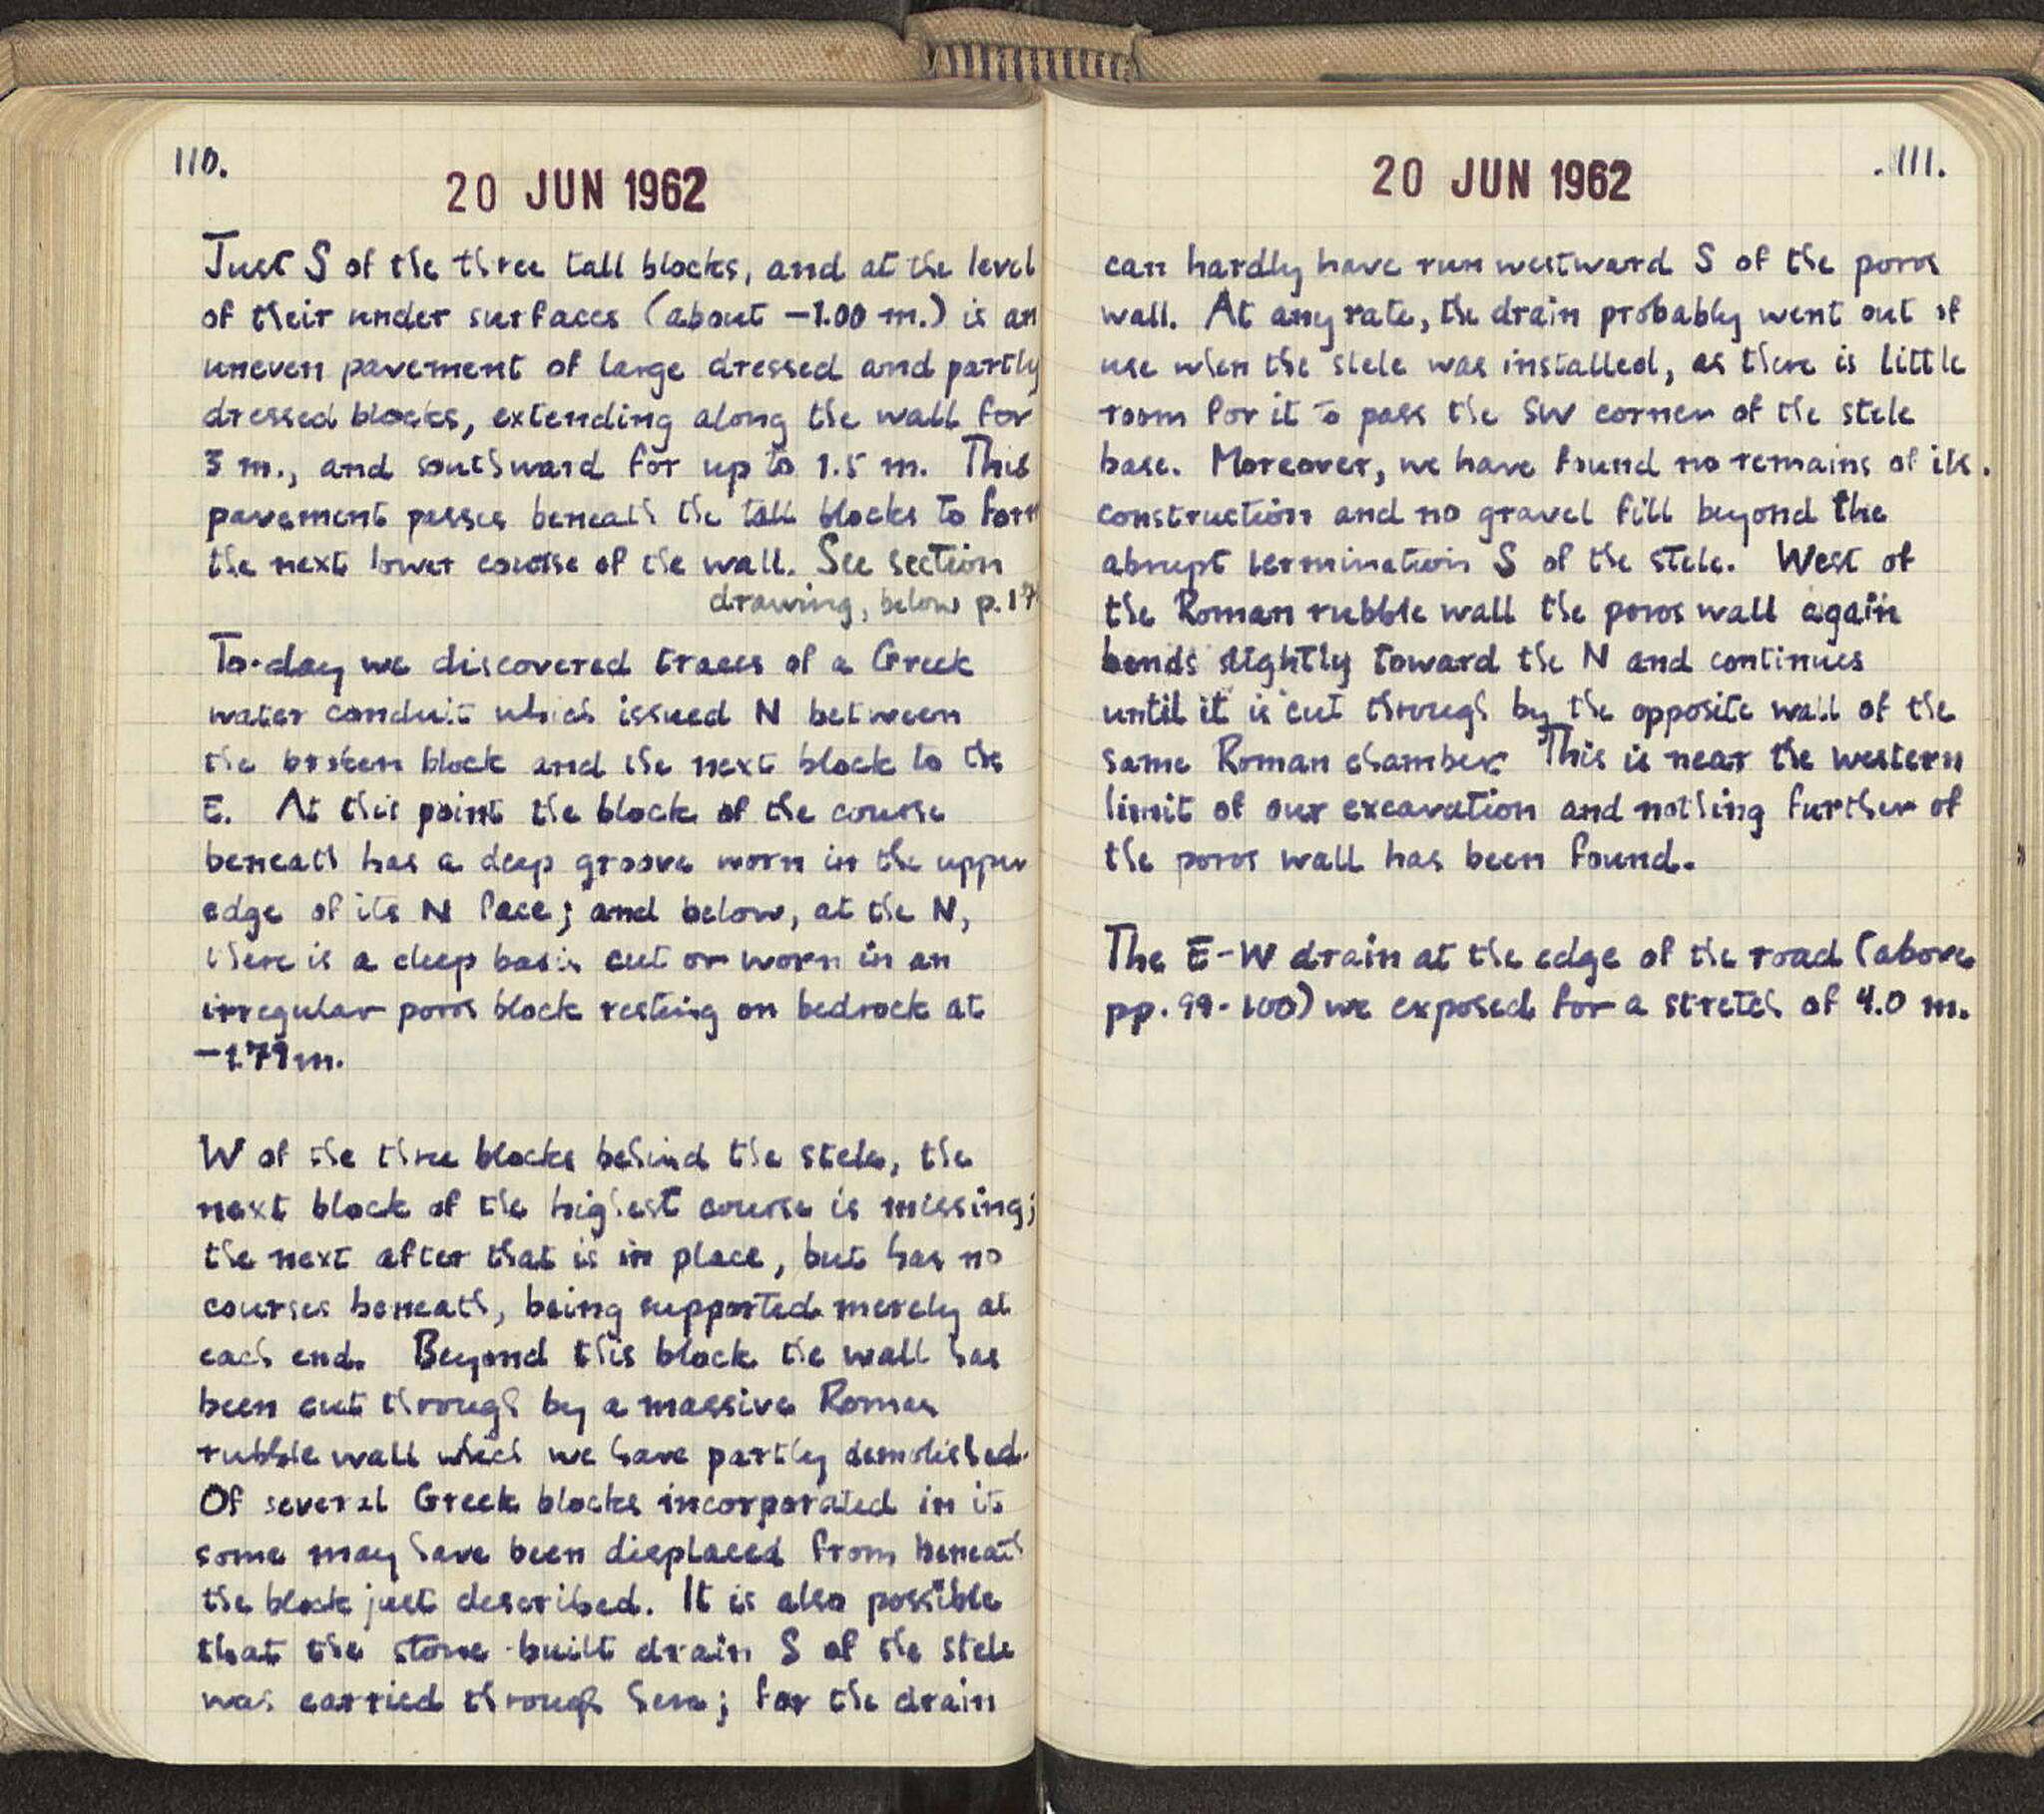 110.
20 JUN 1962
Just S of the three tall blocks, and at the level
of their under surfaces (about -1.00 m.) is an
uneven pavement of large dressed and partly
dressed blocks, extending along the wall for
3 m., and southward for up to 1.5 m. This
pavement passes beneath the tall blocks to form
the next lower course of the wall. See section
drawing, below p.
To-day we discovered traces of a Greek
water conduit which issued N between
the broken block and the next block to the
E. At this point the block of the course
beneath has a deep groove worn in the upper
edge of its N face; and below, at the N,
there is a deep basin cut or worn in an
irregular poros block resting on bedrock at
-1.79 m.
W of the three blocks behind the stele, the
next block of the highest course is missing;
the next after that is in place, but has no
courses beneath, being supported merely at
each end. Beyond this block the wall has
been cut through by a massive Roman
rubble wall which we have partly demolished.
Of several Greek blocks incorporated in it
some may have been displaced from beneath
the block just described. It is also possible
that the stone-built drain S of the stele
was carried through here; for the drain
20 JUN 1962
111.
can hardly have run westward S of the poros
wall. At any rate, the drain probably went out of
use when the stele was installed, as there is little
room for it to pass the SW corner of the stele
base. Moreover, we have found no remains of its
construction and no gravel fill beyond the
abrupt termination S of the stele. West of
the Roman rubble wall the poros wall again
bends slightly toward the N and continues
until it is cut through by the opposite wall of the
same Roman chamber. This is near the western
limit of our excavation and nothing further of
the poros wall has been found.
The E-W drain at the edge of the road (above
pp. 99-100) we exposed for a stretch of 4.0 m.